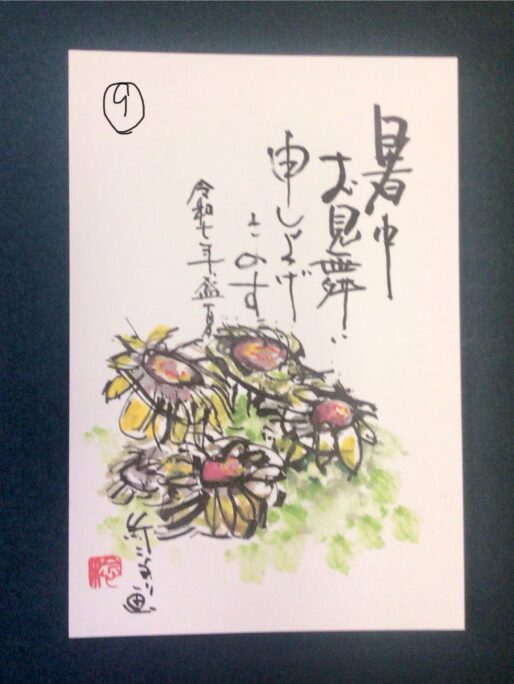 9
暑中
お見舞
申し上げ
ます
令和七年盛夏